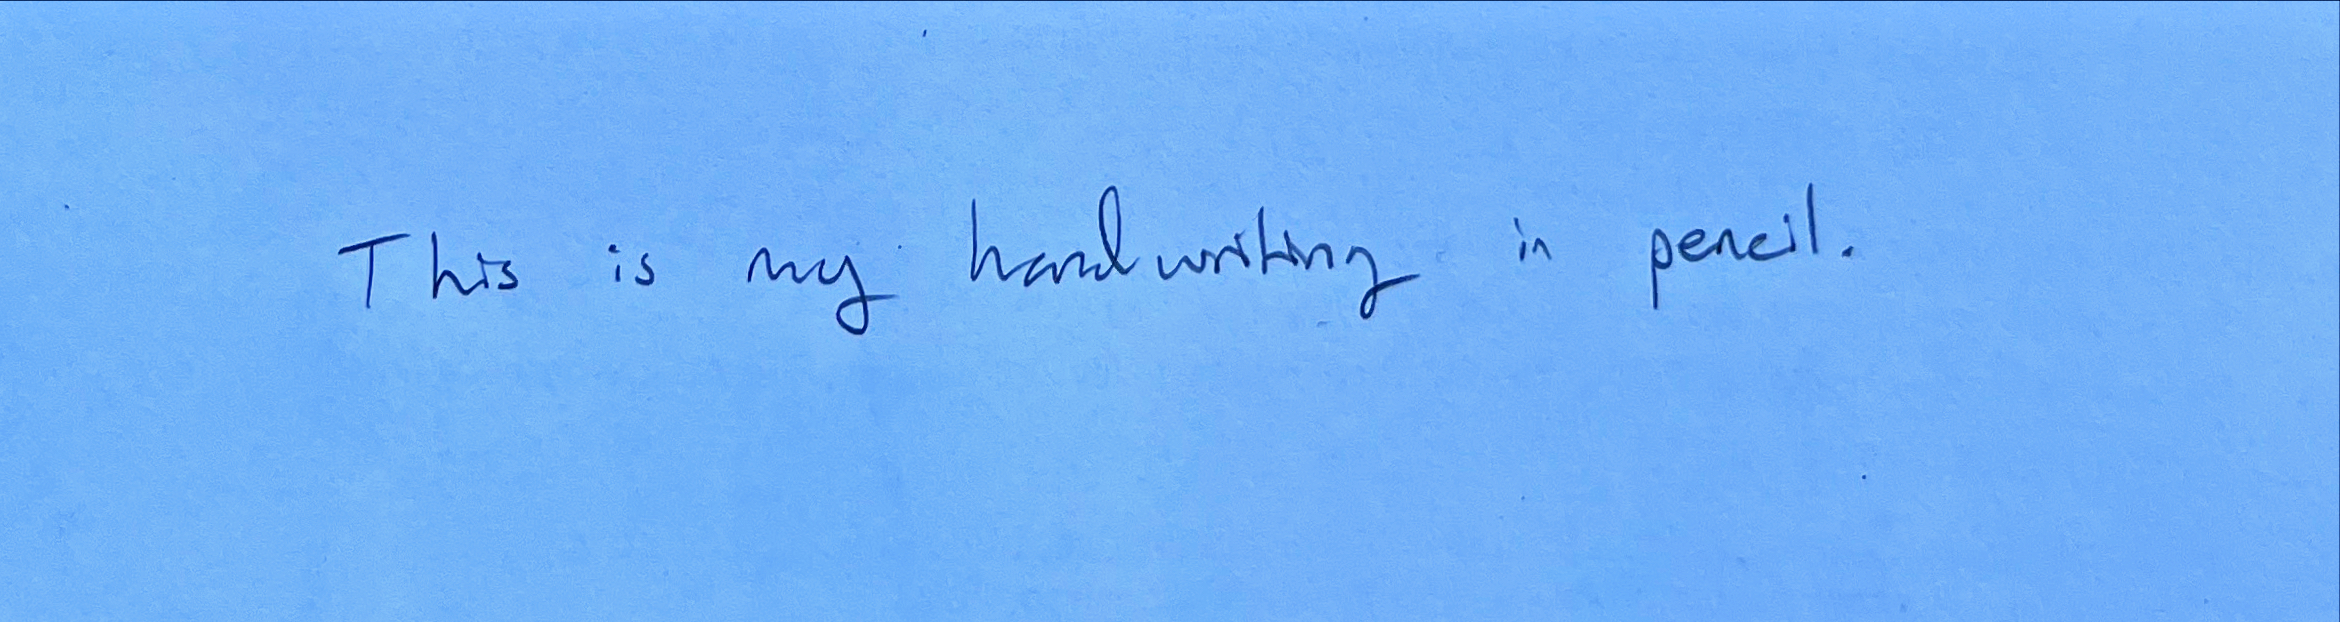 This is my handwriting in pencil.